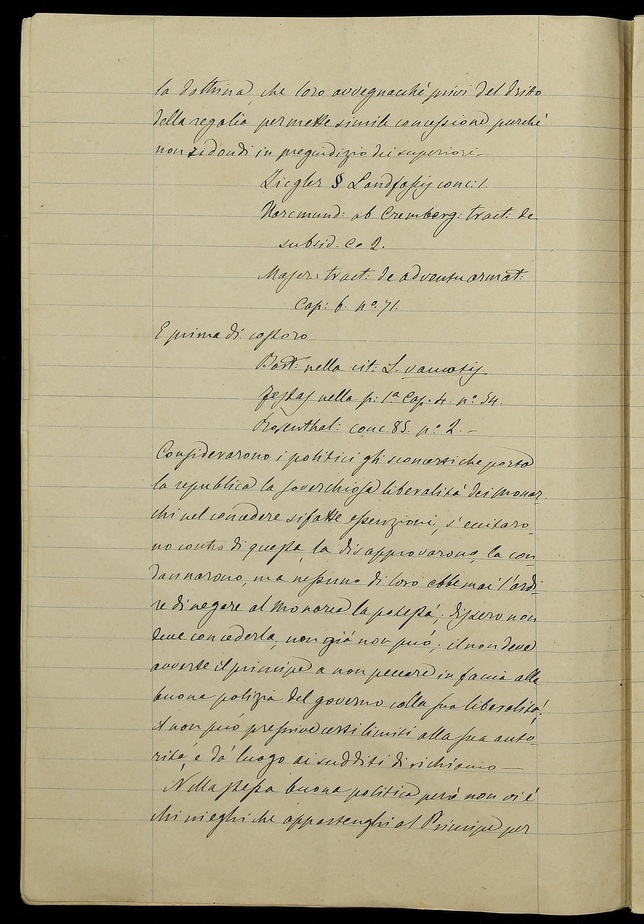 la dottrina, che loro avvegnacché privi del dritto
della regalia permette simile concessione purché
non ridondi in pregiudizio dei superiori
Ziegler § Landfassy conc: 1.
Haremund: ab Cremberg: tract. de
subsid. Ca 2.
Majer: tract: de adventu armat:
Cap: 6. n° 71.
E prima di costoro
Bart: nella cit: L. vacuatis.
nella p: 1a Cap. 4. n° 54.
Rosenthal: conc. 85. n° 2. _
Considerarono i politici gli sconcerti che porta
la republica la soverchiosa liberalità dei Monar-
chi nel concedere sifatte essenzioni, s'eccitaro-
no contro di questa, la disapprovarono, la con-
dannarono, ma nessuno di loro ebbe mai l'ardi
re di negare al Monarca la potestà; dissero non
deve concederla, non già non può; il non deve
avverte il principe a non peccare in faccia alla
buona polizia del governo colla sua liberalità;
il non può prescrive certi limiti alla sua auto-
rità, e dà luogo ai sudditi di richiamo _
Nella stessa buona politica però non vi è
chi nieghi che appartenghi al Principe per